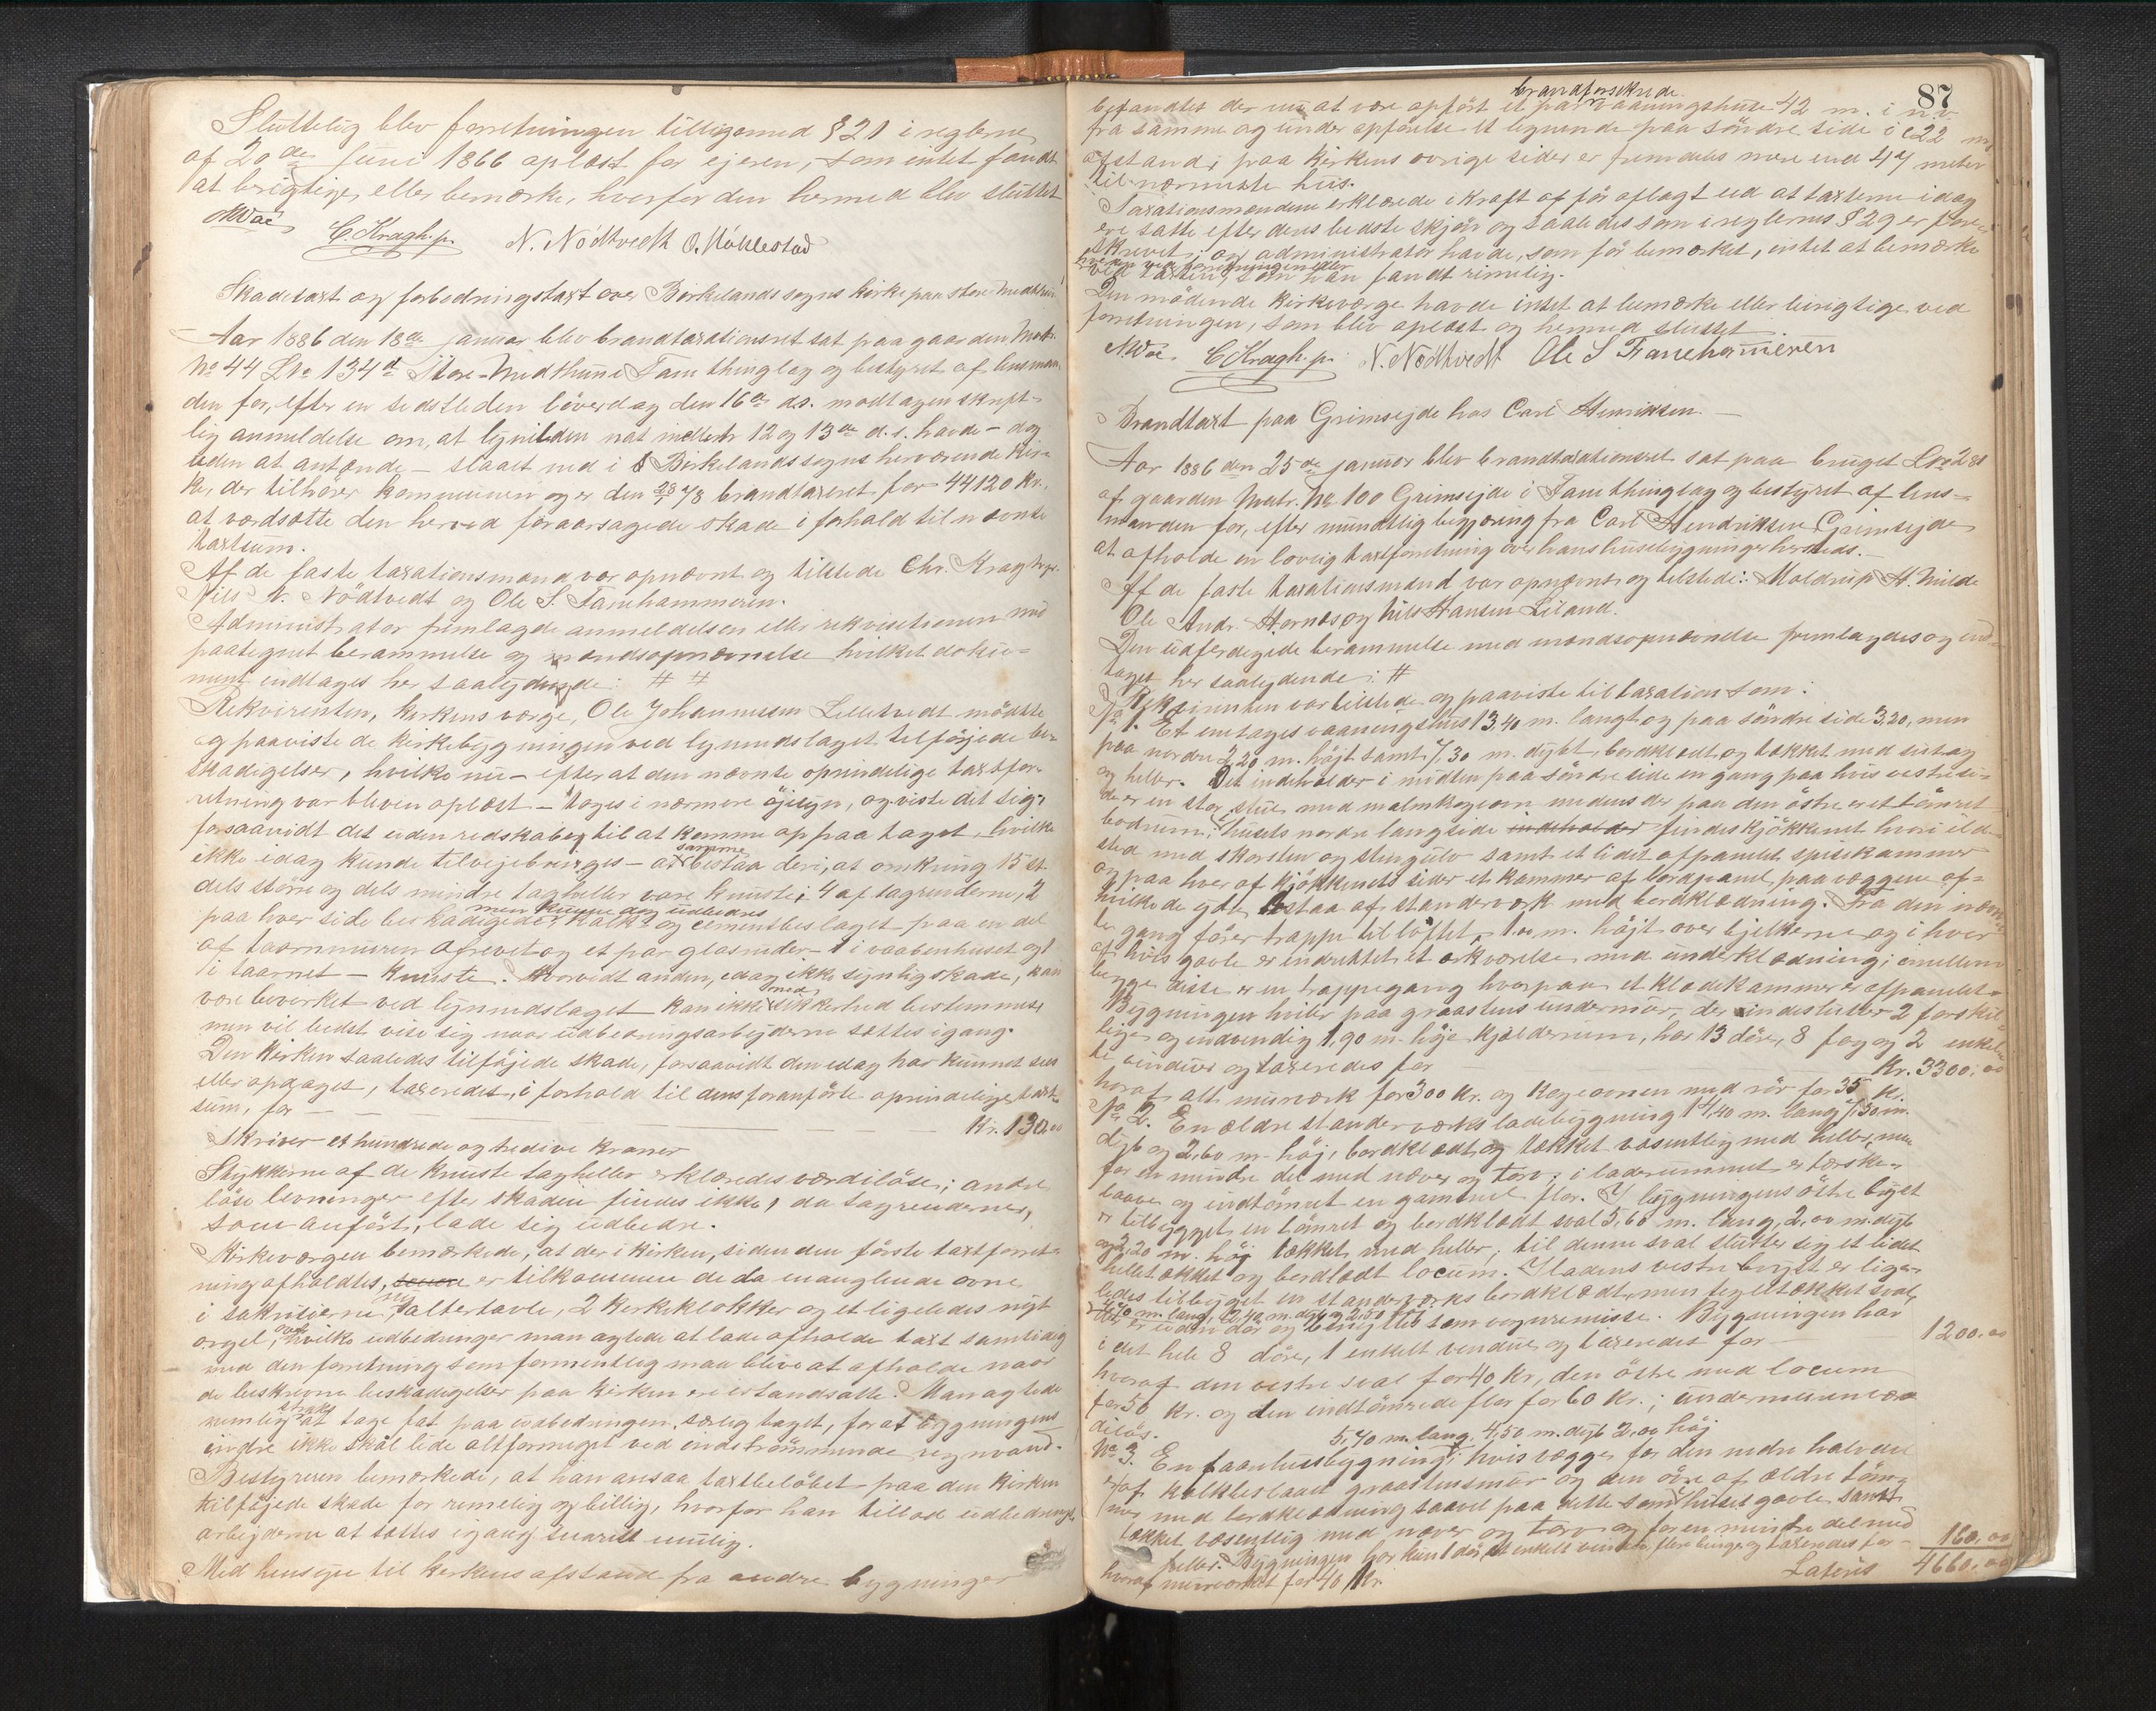 Sluttelig blev forretningen tilligemed § 21 i reglerne
af 20de Juni 1866 oplæst for ejeren, som intet fandt
at berigtige eller bemærke, hvorfor den hermed blev sluttet
C. Kragh. p. N. Nödtvedt O. Köhlestad
Skadetaxt og forbedningstaxt over Birkelands sogns kirke paa store Midthun
Aar 1886 den 18de januar blev brandtaxationsret sat paa gaarden Matr.
No 44 LNo 134d Store-Midthun i Fane thinglag og bestyret af lensman-
den for, efter en sidstleden löverdag den 16de ds. modtagen skrift-
lig anmeldelse om, at lynilden nat mellem 12 og 13de d.s. havde – dog
uden at antænde – slaaet ned i Birkelands sogns herværende kir-
ke, der tilhörer kommunen og er den 23/7 78 brandtaxeret for 44120 Kr.,
at værdsætte den herved foraarsagede skade i forhold til nævnte
taxtsum.
Af de faste taxationsmænd var opnævnt og tilstede Chr. Kragh
Nils N. Nödtvedt og Ole S. Fanehammeren.
Administrator fremlagde anmeldelsen eller rekvisitionen med
paategnet berammelse og mændsopnævnelse hvilket doku-
ment indtages her saalydende: # #
Rekvirenten, kirkens værge, Ole Johannessen Lilletvedt mödte
og paaviste de kirkebygningen ved lynnedslaget tilföjede be-
skadigelser, hvilke nu – efter at den nævnte oprindelige taxtfor-
retning var bleven oplæst – toges i nærmere öjesyn, og viste det sig,
forsaavidt det uden redskaber til at komme op paa taget, hvilke
ikke idag kunde tilvejebringes – at samme bestaa deri, at omkring 15 st.
dels större og dels mindre tagheller vare knuste; 4 af tagrenderne, 2
paa hver side beskadigede, men kunne dog udbedres kalk- og cementbeslaget paa en del
af taarnmuren afrevet og et par glasruder – 1 i vaabenhuset og 1
i taarnet – knuste. Hvorvidt anden, idag ikke synlig skade, kan
være bevirket ved lynnedslaget kan ikke med sikkerhed bestemmes
men vil bedst vise sig naar udbedningsarbejderne sættes igang.
Den kirken saaledes tilföjede skade, forsaavidt den idag har kunnet sees
eller opdages, taxeredes, i forhold til dens foranförte oprindelige taxt-
sum, for – – – Kr. 130.00
skriver et hundrede og tredive kroner
Stykkerne af de knuste tagheller erklæredes værdilöse; andre
löse levninger efter skaden findes ikke, da tagrenderne,
som anfört, lade sig udbedre.
Kirkeværgen bemærkede, at der i kirken, siden den förste taxtforret-
ning afholdtes, er tilkommen de da manglende ovne
i sakristierne, ny altertavle, 2 kirkeklokker og et ligeledes nyt
orgel, over hvilke udbedninger man agtede at lade afholde taxt samtidig
med den forretning som formentlig maa blive at afholde naar
de beskrevne beskadigelser paa kirken ere istandsatte. Man agtede
nemlig straks at tage fat paa udbedningen, særlig taget, for at bygningens
indre ikke skal lide altformeget ved indströmmende regnvand.
Bestyreren bemærkede, at han ansaa taxtbelöbet paa den kirken
tilföjede skade for rimelig og billig, hvorfor han tillod udbednings-
arbejderne at sættes igang snarest mulig.
Med hensyn til kirkens afstand fra andre bygninger
87
befandtes der nu at være opfört et par brandforsikrede vaaningshuse 42 m. i n.v.
fra samme og under opförelse et lignende paa söndre side i 22 m
afstand; paa kirkens övrige sider er fremdeles mere end 47 meter
til nærmeste hus.
Taxationsmændene erklærede i kraft af för aflagt ed at taxterne idag
ere satte efter deres bedste skjön og saaledes som i reglernes § 29 er fore-
skrevet; og administrator havde, som för bemærket, intet at bemærke
hverken ved forretningen eller
ved taxten, som han fandt rimelig.
Den mödende kirkeværge havde intet at bemærke eller berigtige ved
forretningen, som blev oplæst og hermed sluttet
C. Kragh. p. N. Nödtvedt Ole S Fanehameren
Brandtaxt paa Grimsejde hos Carl Henriksen. –
Aar 1886 den 25de januar blev brandtaxationsret sat paa bruget LNo 281
af gaarden Matr. No 100 Grimsejde i Fane thinglag og bestyret af lens-
manden for, efter mundtlig begjæring fra Carl Hendriksen Grimsejde
at afholde en lovlig taxtforretning over hans husebygninger hersteds. –
Af de faste taxationsmænd var opnævnt og tilstede: Moldrup H. Milde
Ole Andr. Hornæs og Nils Hansen Liland.
Den udfærdigede berammelse med mændsopnævnelse fremlagdes og ind-
tages her saalydende: #
Rekvirenten var tilstede og paaviste til taxation som:
No 1. Et enetages vaaningshus 13,40 m. langt og paa söndre side 3,20, men
paa nordre 2,20 m. höjt samt 7,30 m. dybt, bordklædt og tækket med
og heller. Det indeholder i midten paa söndre side en gang paa hvis vestre si-
de er en stor stue med malmkogeovn medens der paa den östre er et tömret
bodrum; i husets nordre langside indeholder findes kjökkenet hvori ild-
sted med skorsten og stengulv samt et lidet afpanelet spisekammer
og paa hver af kjökkenets sider et kammer af bordpanel paa væggene af
hvilke de ydre bestaa af standerværk med bordklædning. Fra den nævn-
te gang förer trappe til löftet, 1.00 m. höjt over bjelkerne og i hver
af hvis gavle er indrettet et arkværelse med underklædning; imellem
begge disse er en trappegang hvorpaa et klædekammer er afpanelet.
Bygningen hviler paa graastens undermur, der indeslutter 2 forskjel-
lige og indvendig 1,90 m. höje kjælderrum, har 13 döre, 8 fag og 2 enkel-
te vinduer og taxeredes for – Kr. 3300.00
hvoraf alt murværk for 300 kr. og kogeovnen med rör for 35 kr.
No 2. En ældre standerværks ladebygning 14,40 m. lang 7,30 m.
dyb og 2,60 m. höj, bordklædt og tækket væsentlig med heller, men
for en mindre del med næver og torv; i laderummet er tærske-
laave og indtömret en gammel flor. I bygningens östre bryst
er tilbygget en tömret og bordklædt sval 5,60 m. lang, 2,00 m. dyb
og 2,20 m. höj tækket med heller; til denne sval slutter sig et lidet
helletækket og bordklædt locum. I ladens vestre bryst er lige-
ledes tilbygget en standerværks bordklædt, men tegltækket sval,
4,70 m. lang, 2,40 m. dyb og 2,50 höj
der er uden dör og benyttes som vognremisse. Bygningen har
i det hele 8 döre, 1 enkelt vindue og taxeredes for – 1200.00
hvoraf den vestre sval for 40 kr, den östre med locum
for 50 kr. og den indtömrede flor for 60 kr.; undermuren vær-
dilös.
5,40 m. lang, 4,50 m. dyb 2,00 höj
No 3. En faarhusbygning, hvis vægge for den nedre halvdel
er af kalkbeslaaet graastensmur og den övre af ældre töm-
mer med bordklædning saavel paa dette som i huset gavle samt
tækket væsentlig med næver og torv og for en mindre del med
heller. Bygningen har kun 1 dör, et enkelt vindue, flere binge og taxeredes for – 160.00
hvoraf murværket for 40 Kr. Lateris 4660.00